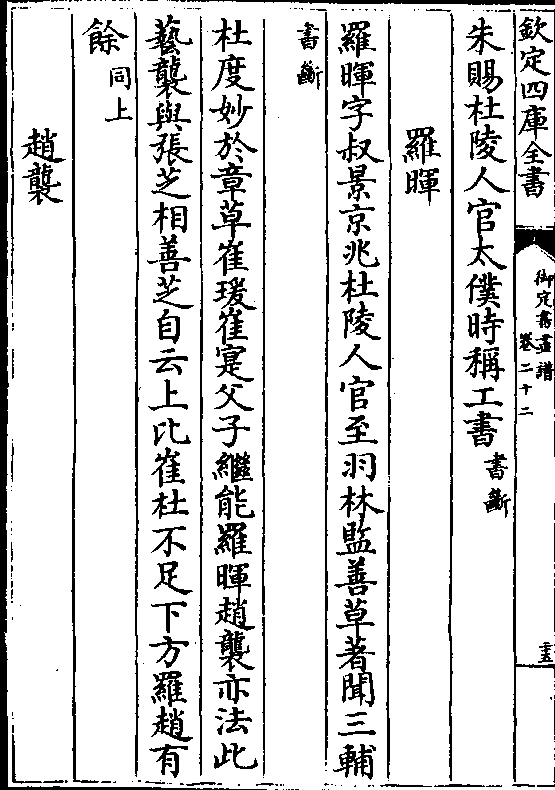 欽定四庫全書
御定書畫譜
卷二十二
朱賜杜陵人官太僕時稱工書書斷
羅暉
羅暉字叔景京兆杜陵人官至羽林監善草著聞三輔
書斷
杜度妙於章草崔瑗崔寔父子繼能羅暉趙襲亦法此
藝襲與張芝相善芝自云上比崔杜不足下方羅趙有
餘同上
趙襲